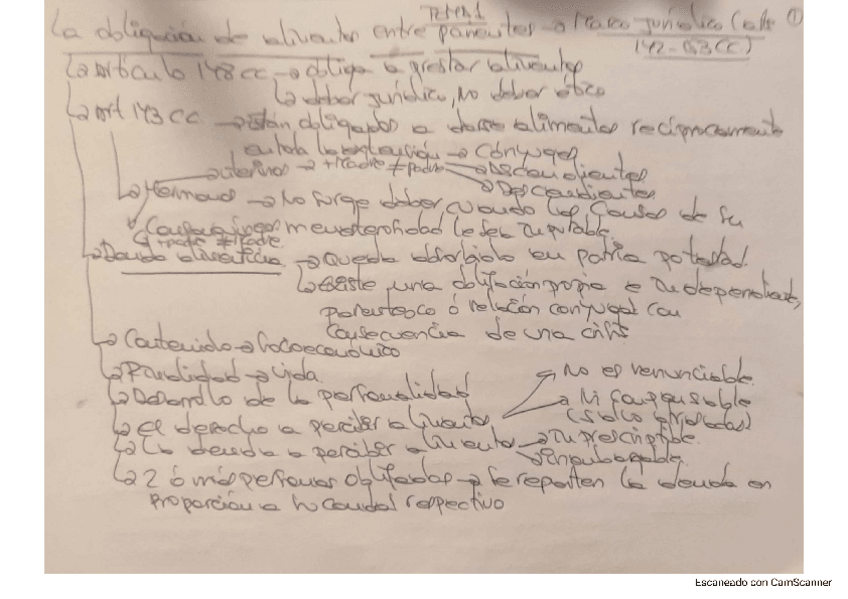 TEMA 1
La obligación de alimentos entre parientes → Marco jurídico (arts ①
142-153 CC)
↳ artículo 148 CC → obliga a prestar alimentos
↳ deber jurídico, No deber ético
↳ art 143 CC → Están obligados a darse alimentos recíprocamente
en toda la extensión → Cónyuges
uterinos → +Madre ≠ padre → Ascendientes
→ Descendientes
↳ Hermanos → No surge deber cuando la causa de su
menesterosidad le sea imputable
+padre ≠ Madre
↳ Deuda alimenticia → Queda absorbido en patria potestad
↳ existe una obligación propia e independiente,
parentesco ó relación conyugal con
consecuencia de una crisis
↳ Contenido → Socioeconómico
↳ Finalidad → vida
↳ Desarrollo de la personalidad
→ No es renunciable
↳ El derecho a percibir alimentos → Ni compensable
(salvo atrasadas)
↳ La deuda a percibir alimentos → Imprescriptible
→ Inembargable
↳ 2 ó más personas obligadas → Se reparten la deuda en
proporción a su caudal respectivo
Escaneado con CamScanner